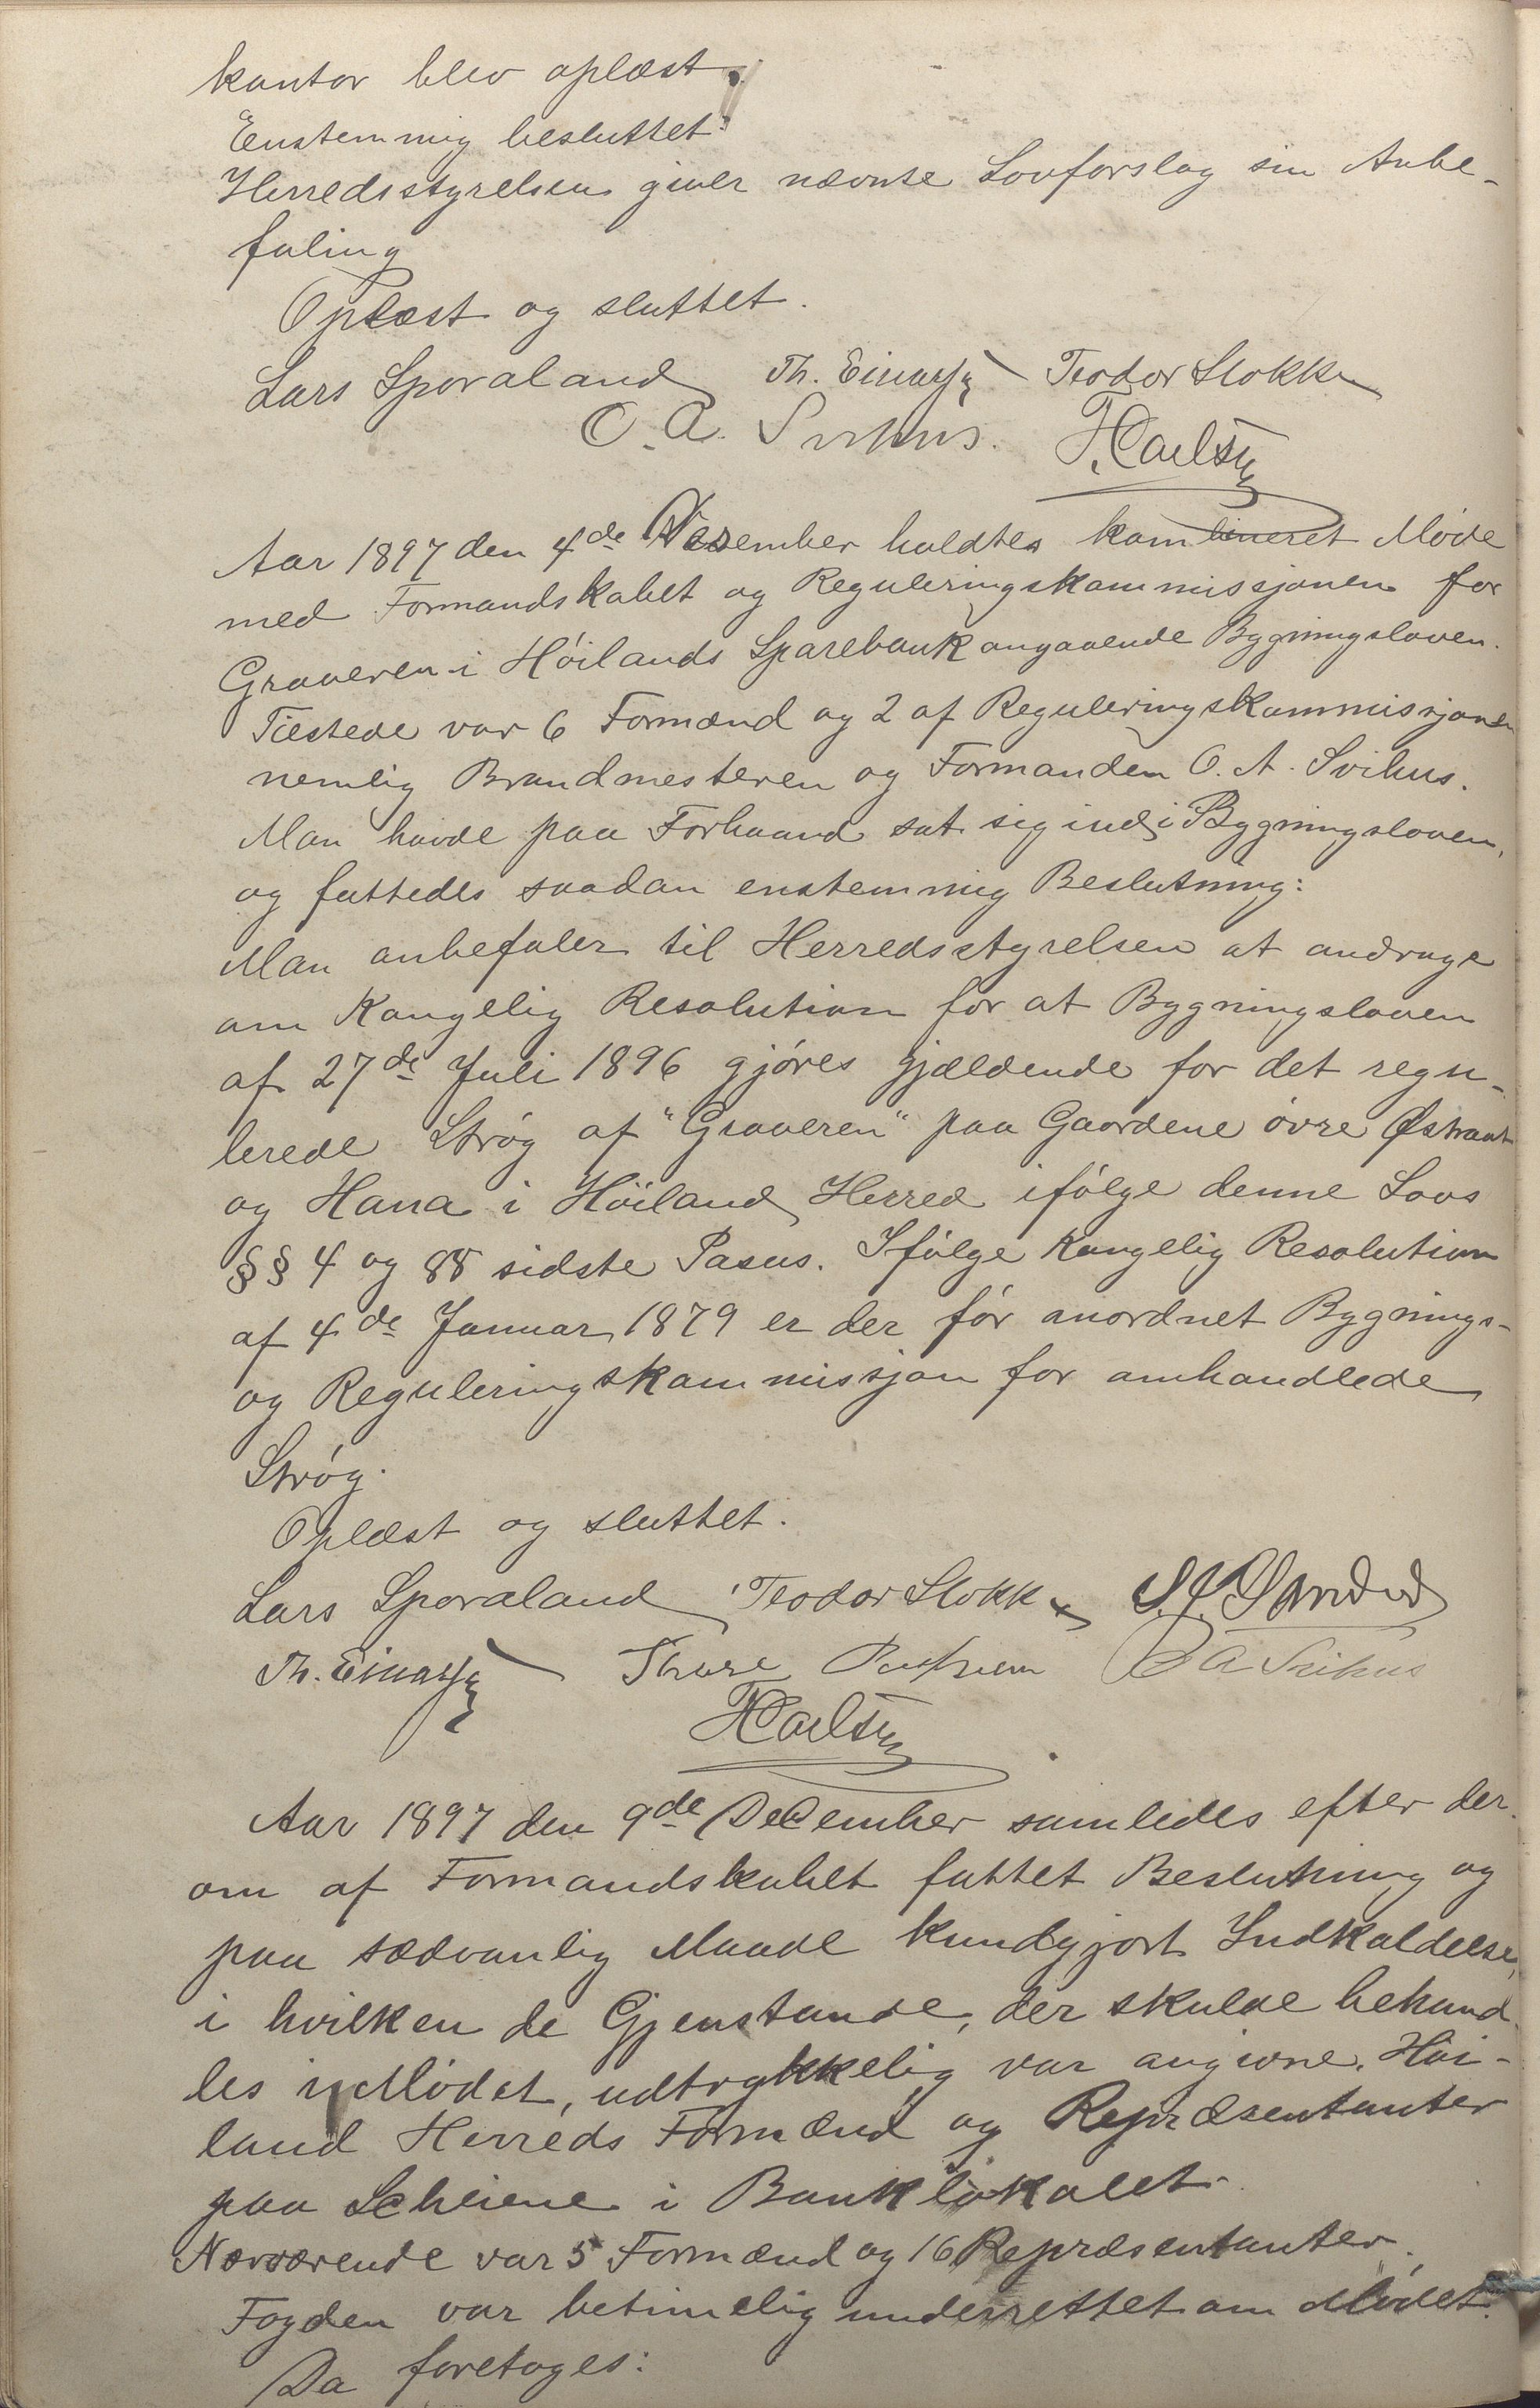 kontor blev oplæst.
Enstemmig besluttet:
Herredsstyrelsen giver nævnte Lovforslag sin Anbe-
faling
Oplæst og sluttet.
Lars Sporaland Th. Einarsen Teodor Stokke
O. A. Svihus. T. Carlsen
Aar 1897 den 4de Desember holdtes kombineret Møde
med Formandskabet og Reguleringskommissjonen for
Graveren i Höilands Sparebank angaaende Bygningsloven.
Tilstede var 6 Formænd og 2 af Reguleringskommissjonen
nemlig Brandmesteren og Formanden O. A. Svihus.
Man havde paa Forhaand sat sig ind i Bygningsloven,
og fattedes saadan enstemmig Beslutning:
Man anbefaler til Herredsstyrelsen at andrage
om Kongelig Resolution for at Bygningsloven
af 27de Juli 1896 gjøres gjældende for det regu-
lerede Strøg af "Graveren" paa Gaardene övre Østraat
og Hana i Höiland Herred ifølge denne Lovs
§§ 4 og 88 sidste Pasus. Ifølge Kongelig Resolution
af 4de Januar 1879 er der før anordnet Bygnings-
og Reguleringskommissjon for omhandlede
Strøg.
Oplæst og sluttet.
Lars Sporaland Teodor Stokke
Th. Einarsen O A Svihus
T. Carlsen
Aar 1897 den 9de December samledes efter der-
om af Formandskabet fattet Beslutning og
paa sædvanlig Maade kundgjort Indkaldelse,
i hvilken de Gjenstande, der skulde behand-
les i Mødet, udtrykkelig var angivne. Höi-
land Herreds Formænd og Repræsentanter
paa Scheiene i Banklokalet.
Nærværende var 5 Formænd og 16 Repræsentanter.
Fogden var betimelig underrettet om Mødet.
Da foretoges: